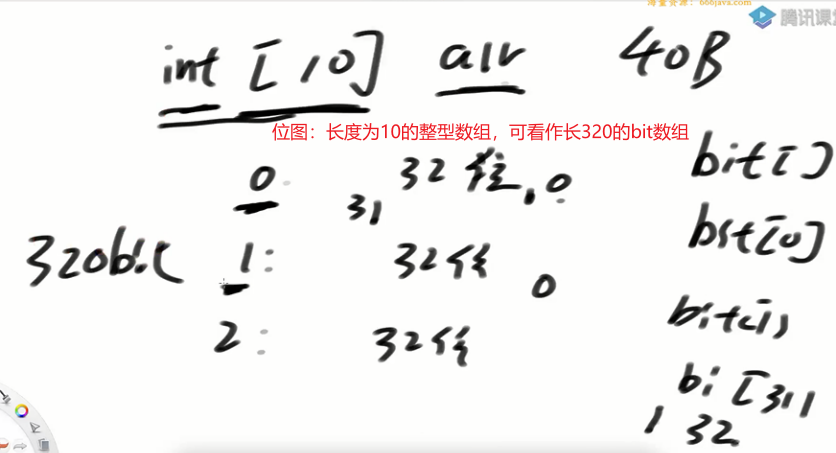 海量资源：666java.com
腾讯课
int [10] arr 40B
位图：长度为10的整型数组，可看作长320的bit数组
0 32位 0
31
bit[]
320bit 1: 32位 0
bit[0]
2: 32位
bit[1]
bi[31]
1 32